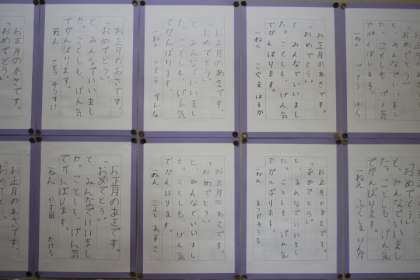 お正月のあさです。
「おめでとう。」
お正月のあさです。
「おめでとう。」
と、みんなでいいまし
た。ことしも、げん気
でがんばります。
お正月のあさです。
「おめでとう。」
と、みんなでいいまし
た。ことしも、げん気
でがんばります。
一ねん
お正月のあさです。
「おめでとう。」
と、みんなでいいまし
た。ことしも、げん気
でがんばります。
一ねん
と、みんなでいいまし
た。ことしも、げん気
でがんばります。
一ねん
お正月のあさです。
お正月のあさです。
「おめでとう。」
と、みんなでいいまし
た。ことしも、げん気
でがんばります。
一ねん
お正月のあさです。
「おめでとう。」
と、みんなでいいまし
た。ことしも、げん気
でがんばります。
一ねん
お正月のあさです。
「おめでとう。」
と、みんなでいいまし
た。ことしも、げん気
でがんばります。
一ねん
お正月のあさです。
「おめでとう。」
と、みんなでいいまし
た。ことしも、げん気
でがんばります。
一ねん